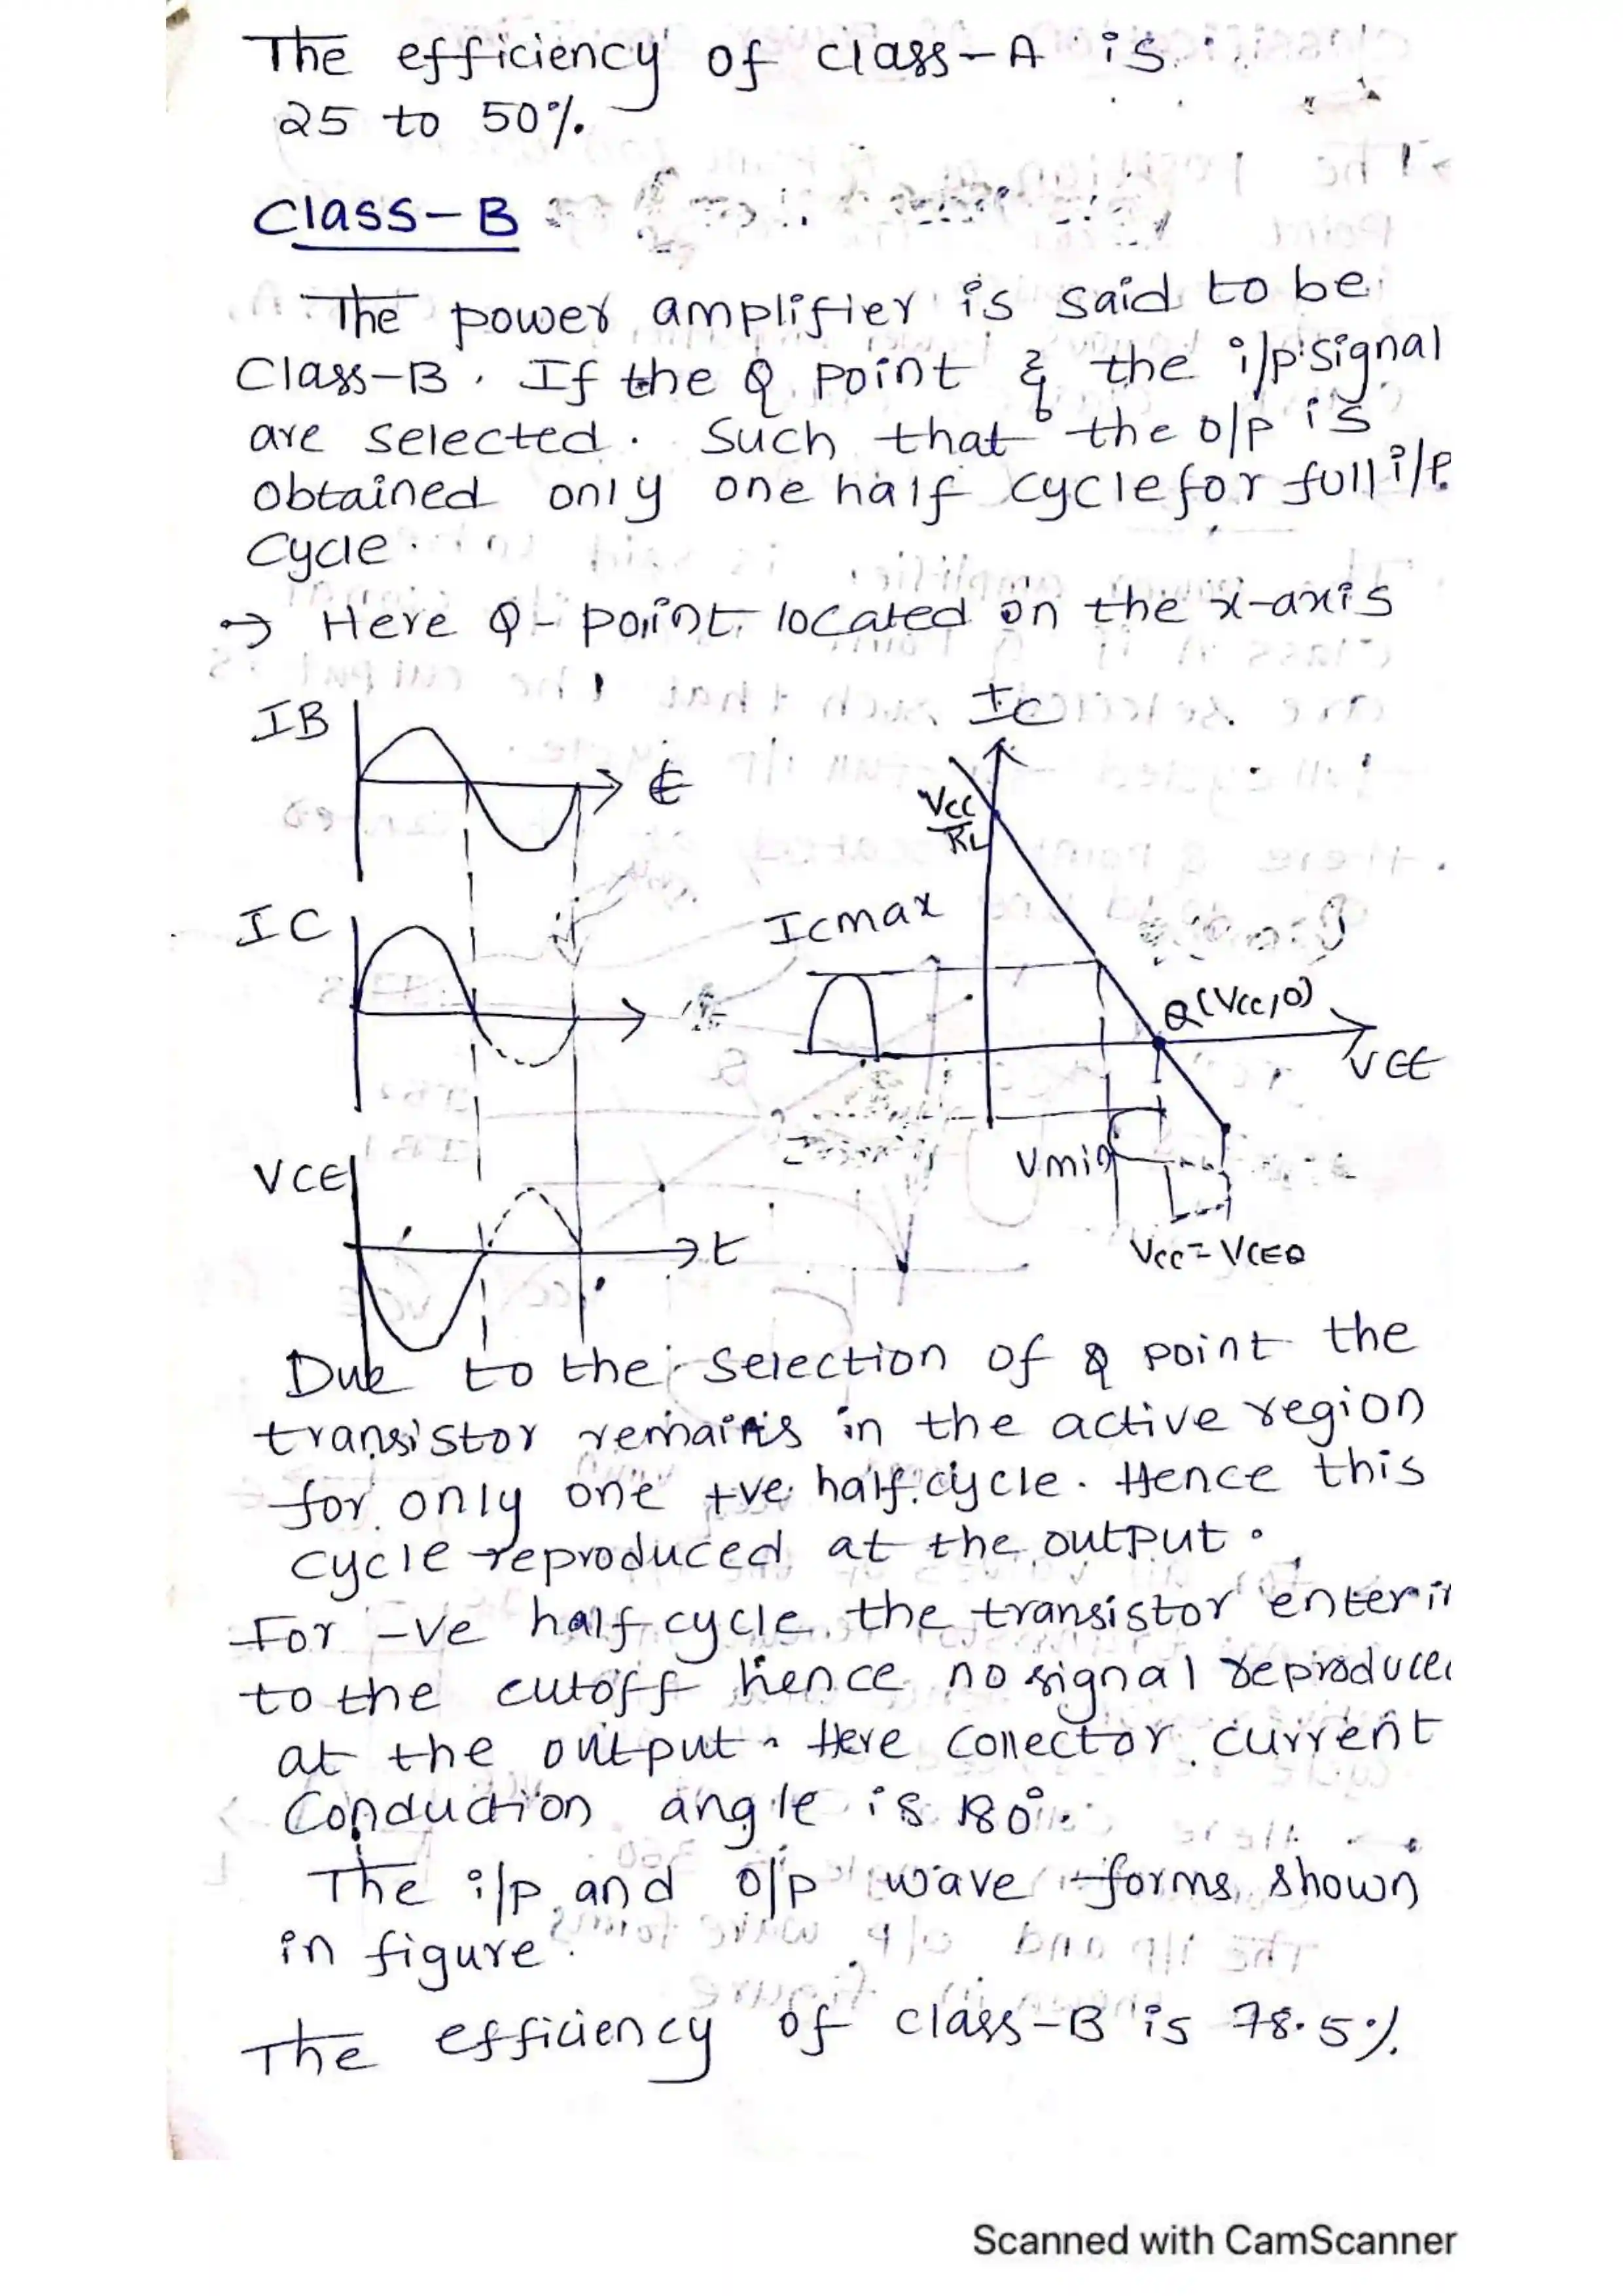 The efficiency of class-A is
25 to 50%.
Class-B
The power amplifier is said to be
Class-B. If the Q point & the i/p signal
are selected. Such that the o/p is
obtained only one half cycle for full i/p
cycle.
→ Here Q-point located on the x-axis
IB
t
IC
VCE
t
IC
Vcc
RL
Icmax
Q(Vcc,0)
VCE
Vmin
Vcc=VCEQ
Due to the selection of Q point the
transistor remains in the active region
for only one +ve half cycle. Hence this
cycle reproduced at the output.
For -ve half cycle the transistor enter in
to the cutoff hence no signal reproduced
at the output. Here collector current
Conduction angle is 180°.
The i/p and o/p wave forms shown
in figure.
The efficiency of class-B is 78.5%.
Scanned with CamScanner